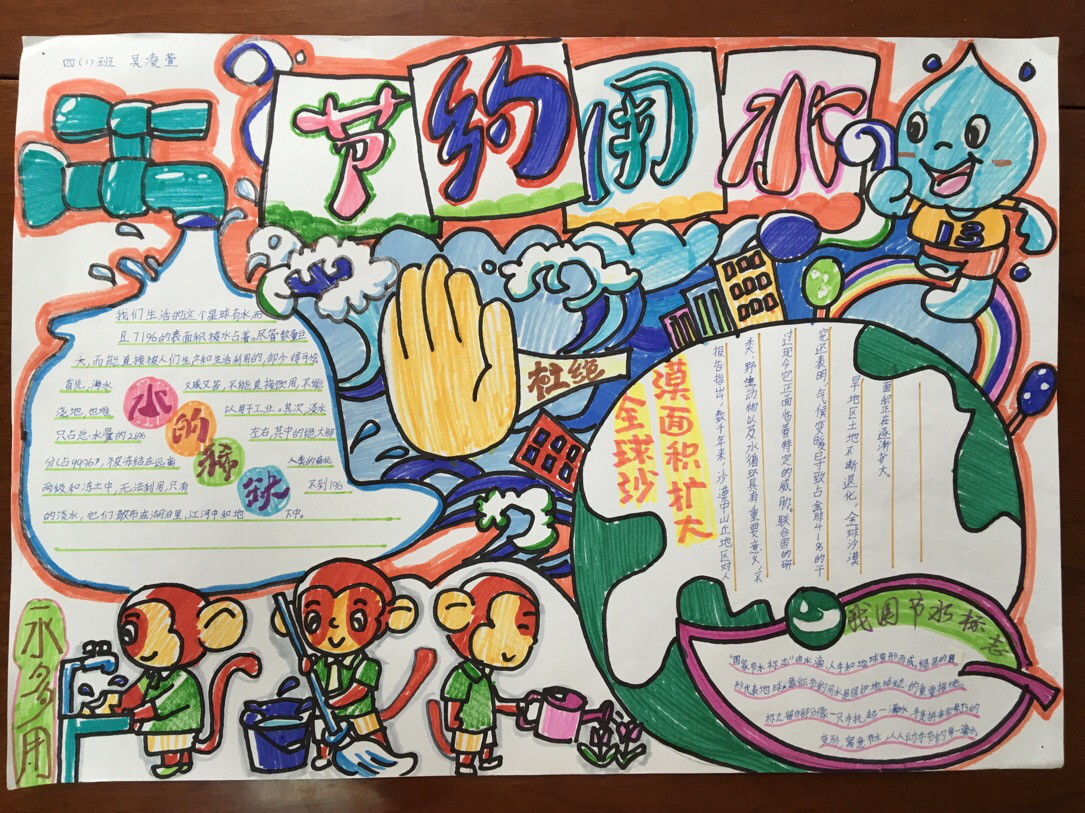 四(1)班 吴凌萱
节约用水
我们生活的这个星球有水而
且71%的表面积被水占着。尽管数量巨
大,而能直接被人们生产和生活利用的,却少得可怜
首先,海水 又咸又苦,不能直接饮用,不能
浇地,也难 以用于工业。其次,淡水
只占总水量的2.6% 左右,其中的绝大部
分(占99.96%),被冻结在远离 人类的南北
两极和冻土中,无法利用,只有 不到1%
的淡水,他们散布在湖泊里、江河中和地 下中。
水的稀缺
杜绝
全球沙
漠面积扩大
报告指出,数千年来,沙漠中山丘地区对人
类、野生动物以及水循环具有重要意义,不
过现今它正面临着特定的威胁。联合国的研
究还表明,气候变暖已导致占全球41%的干
旱地区土地不断退化,全球沙漠
面积正在逐渐扩大。
我国节水标志
"国家节水标志"由水滴、人手和地球变形而成。绿色的圆
形代表地球,象征节约用水是保护地球生态的重要措施。
标志留白部分像一只手托起一滴水,手是拼音字母JS的
变形,寓意节水,人人动手节约每一滴水
一水多用